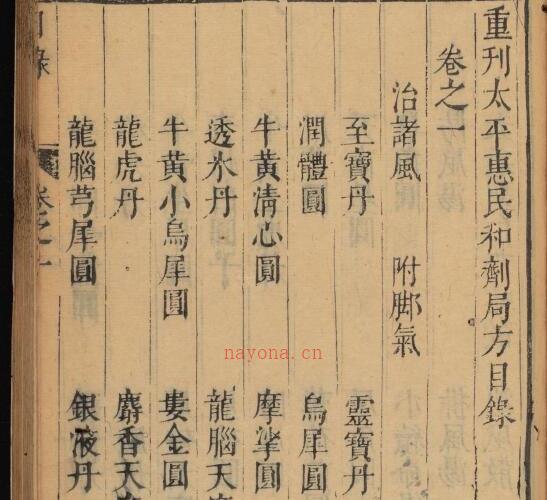 重刊太平惠民和劑局方目錄
卷之一
治諸風 附脚氣
至寶丹 靈寶丹
潤體圓 烏犀圓
牛黃清心圓 摩挲圓
透氷丹 龍腦天
牛黃小烏犀圓 婁金圓
龍虎丹 麝香天
龍腦芎犀圓 銀液丹
目錄 卷之一
nayona.cn